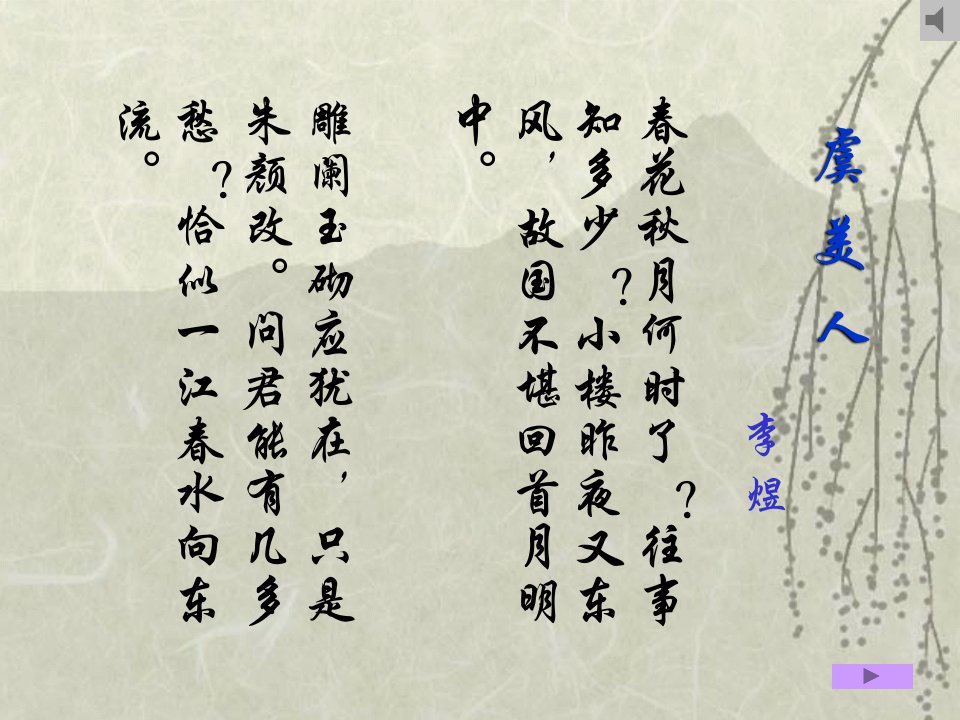 虞美人
李煜
春花秋月何时了?往事
知多少?小楼昨夜又东
风,故国不堪回首月明
中。
雕阑玉砌应犹在,只是
朱颜改。问君能有几多
愁?恰似一江春水向东
流。